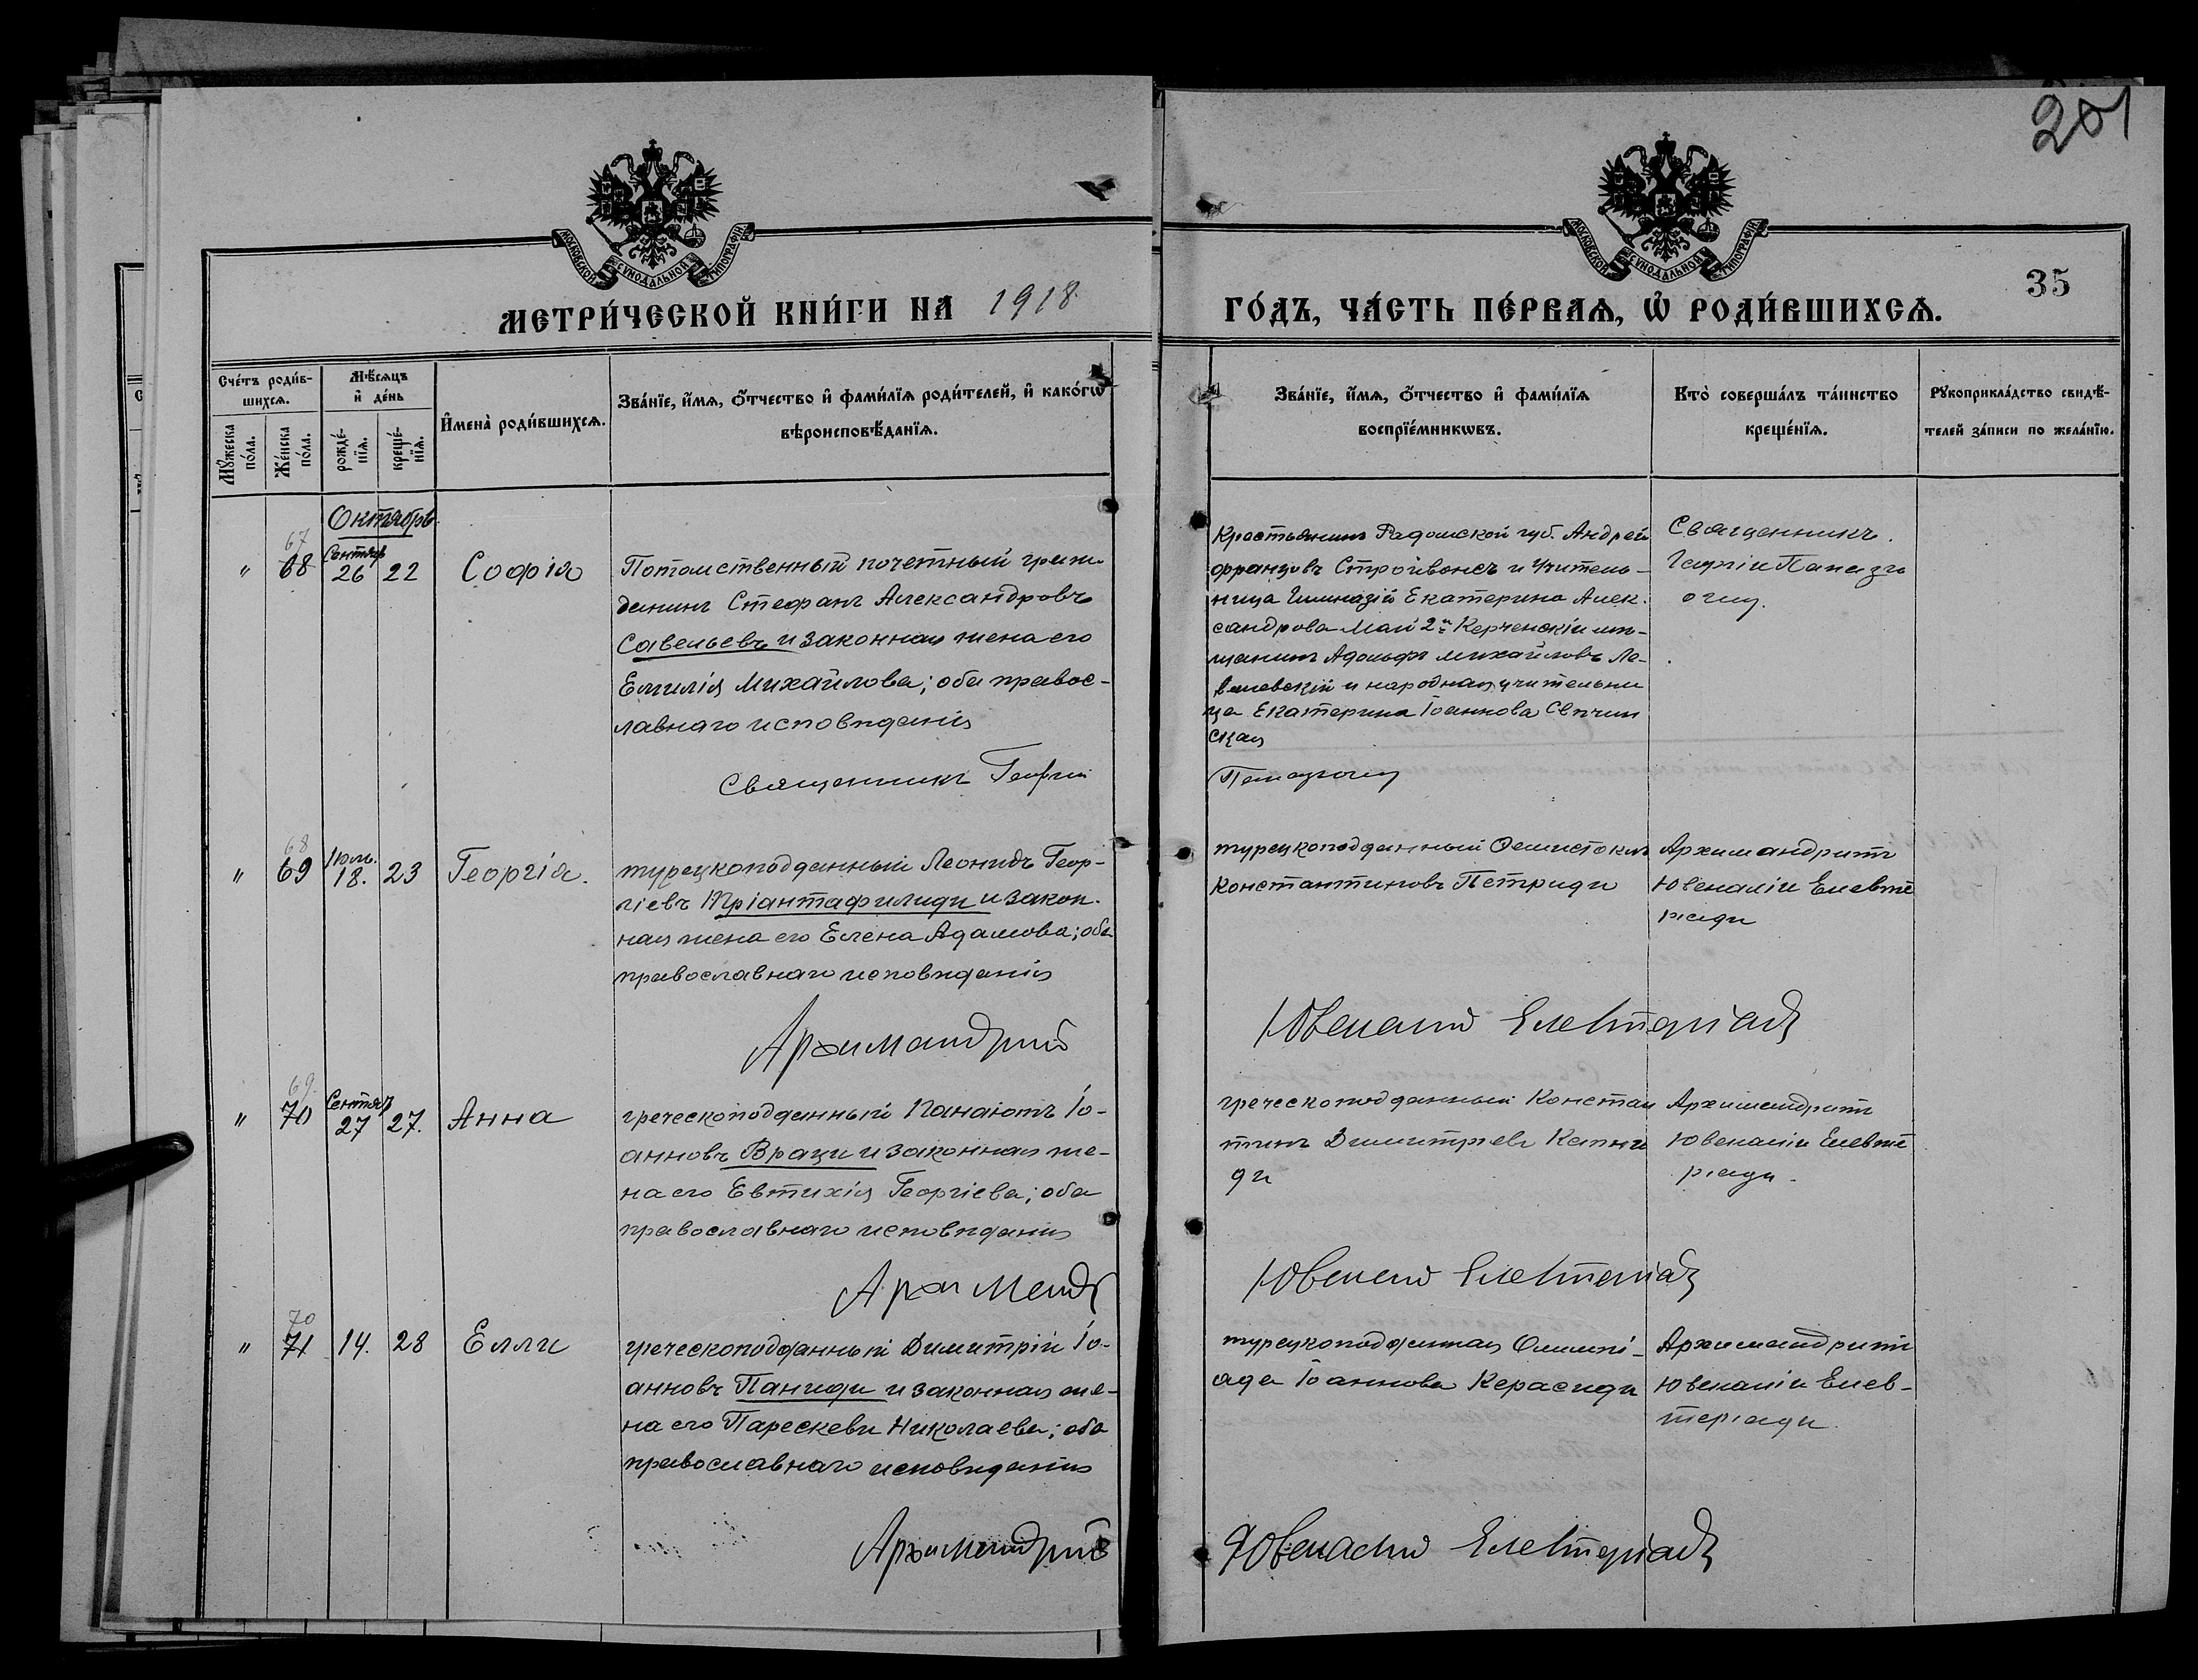 201
МОСКОВСКОЙ СѴНОДАЛЬНОЙ ТИПОГРАФІИ
МОСКОВСКОЙ СѴНОДАЛЬНОЙ ТИПОГРАФІИ
35
МЕТРИ́ЧЕСКОЙ КНИ́ГИ НА 1918.
ГО́ДЪ, ЧА́СТЬ ПЕ́РВАѦ, Ѡ҆ РОДИ́ВШИХСѦ.
Сче́тъ роди́в-
шихсѧ.
Мꙋ́жеска
по́ла.
Же́нска
по́ла.
Мѣ́сѧцъ
и҆ де́нь
рожде́-
нїѧ.
креще́-
нїѧ.
И҆мена̀ роди́вшихсѧ.
Зва́нїе, и҆́мѧ, ѻ҆́тчество и҆ фами́лїѧ роди́телей, и҆ како́гѡ
вѣроисповѣ́данїѧ.
Зва́нїе, и҆́мѧ, ѻ҆́тчество и҆ фами́лїѧ
воспрїе́мникѡвъ.
Кто̀ соверша́лъ та́инство
креще́нїѧ.
Рꙋкоприкла́дство свидѣ́-
телей за́писи по жела́нїю.
Октябрь
67
" 68 Сентяб 26 22 Софія
Потомственный почетный граж-
данинъ Стефанъ Александровъ
Савельевъ и законная жена его
Емилія Михайлова; оба правос-
лавнаго исповѣданія
Священникъ Георгій
Крестьянинъ Радомской губ. Андрей
Францовъ и учитель-
ница Гимназіи Екатерина Алек-
сандрова Май 2й Керченскій мѣ-
щанинъ Адольфъ Михайловъ Ле-
вшевскій и народная учительни
ца Екатерина Іоаннова
ская
Священникъ
Георгій
68
" 69 Іюль. 18. 23 Георгія.
турецкоподданный Леонидъ Геор-
гіевъ Тріантафилиди и закон.
ная жена его Елена Адамова; оба
православнаго исповѣданія
Архимандритъ
турецкоподданный Ѳемистоклъ
Константиновъ Петриди
Архимандритъ
Ювеналій Елевте
ріади
Ювеналій Елевтеріади
69.
" 70 Сентяб 27 27. Анна
греческоподданный Панаіотъ Іо-
анновъ Враци и законная же-
на его Евтихія Георгіева; оба
православнаго исповѣданія
Архиманд
греческоподданный Констан
тинъ Димитріевъ
ди
Архимандритъ
Ювеналій Елевте
ріади.
Ювеналій Елевтеріади
70
" 71 14. 28 Елли
греческоподданный Димитрій Іо-
анновъ Пангиди и законная же-
на его Параскеви Николаева; оба
православнаго исповѣданія
Архимандритъ
турецкоподданная Олимпі-
ада Іоаннова Керасиди
Архимандритъ
Ювеналій Елев-
теріади
Ювеналій Елевтеріади